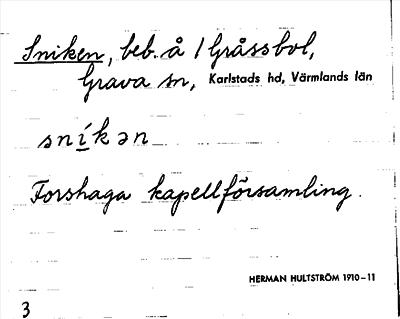 Sniken, beb. å / Gråssbol,
Grava sn, Karlstads hd, Värmlands län
sníkən
Forshaga kapellförsamling.
HERMAN HULTSTRÖM 1910-11
3